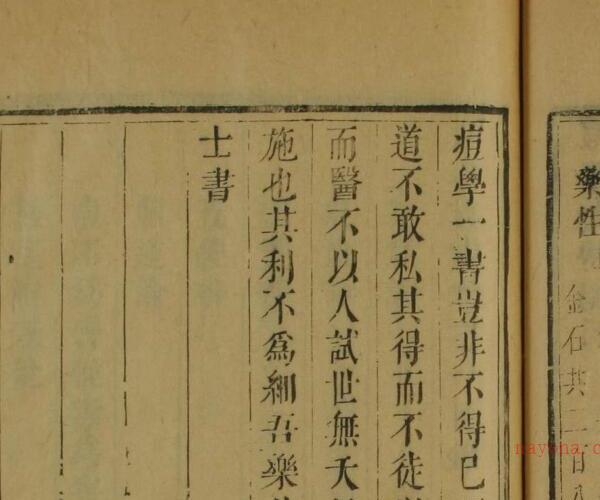 痘學一書豈非不得已
道不敢私其得而不徒
而醫不以人試世無夭
施也其利不為細吾樂
士書
藥性
金石共二百八
nayona.c